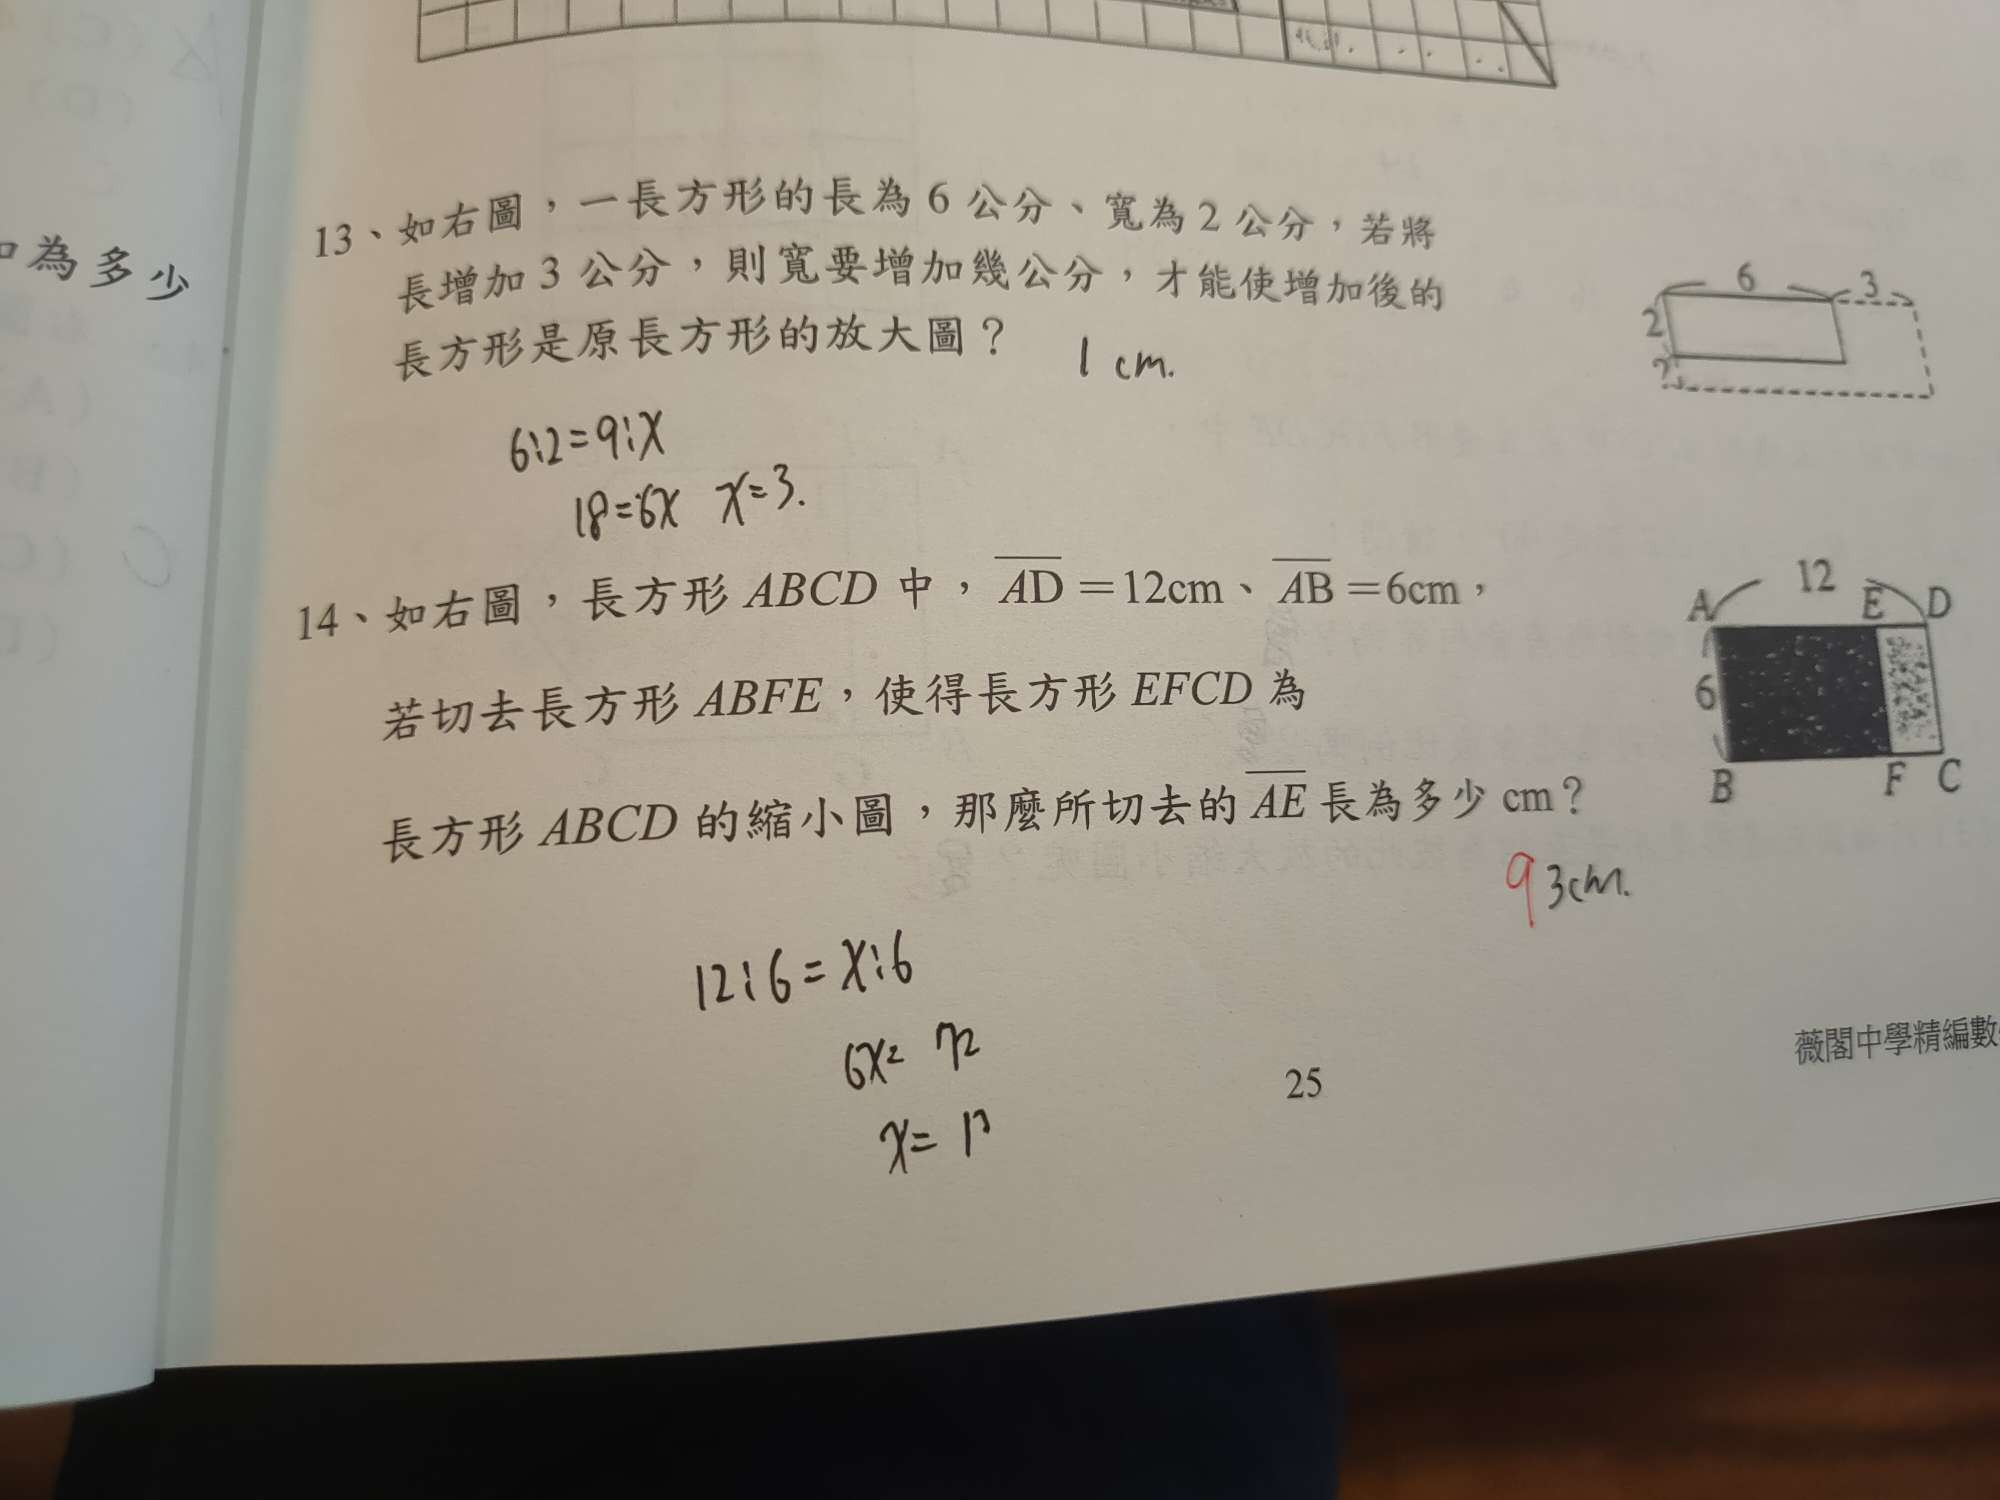 為多少
13、如右圖，一長方形的長為 6 公分、寬為 2 公分，若將
長增加 3 公分，則寬要增加幾公分，才能使增加後的
長方形是原長方形的放大圖？ 1 cm.
6 3
2
?
6:2=9:x
18=6x x=3.
14、如右圖，長方形 ABCD 中，AD＝12cm、AB＝6cm，
若切去長方形 ABFE，使得長方形 EFCD 為
長方形 ABCD 的縮小圖，那麼所切去的 AE 長為多少 cm？
12
A E D
6
B F C
9 3cm.
12:6=x:6
6x= 72
x=
25
薇閣中學精編數